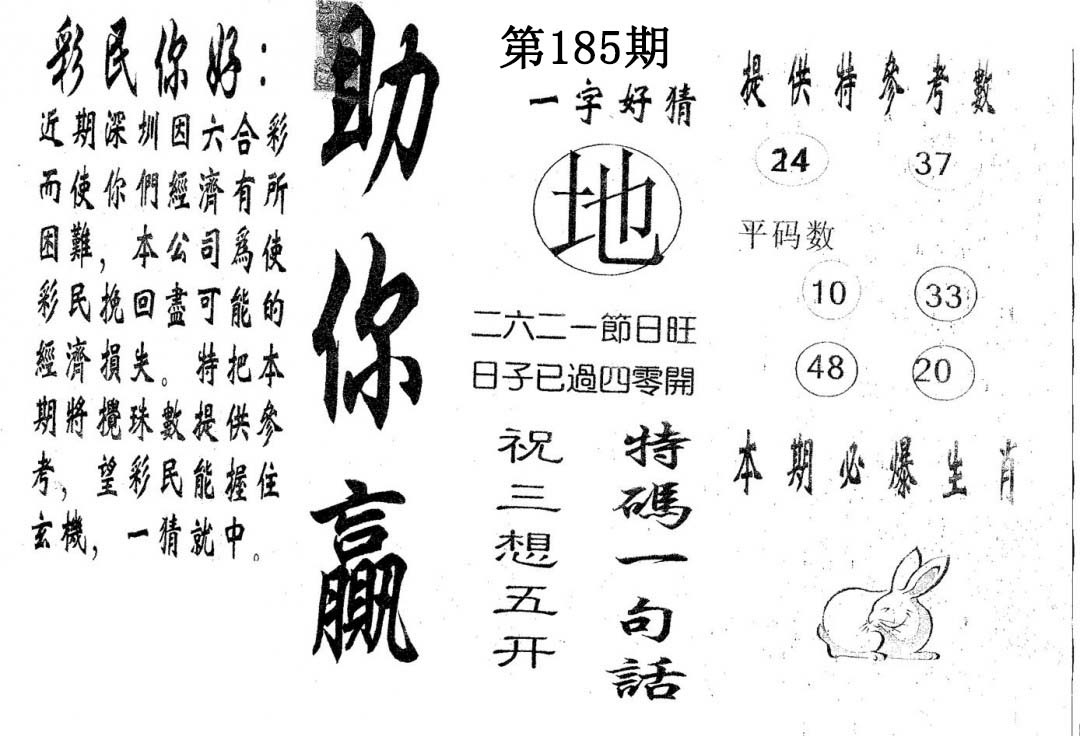 彩民你好：
近期深圳因六合彩
而使你們經濟有所
困難，本公司為使
彩民挽回盡可能的
經濟損失。特把本
期將攪珠數提供參
考，望彩民能握住
玄機，一猜就中。
助你贏
第185期
一字好猜
地
二六二一節日旺
日子已過四零開
特碼一句話
祝三想五开
提供特參考數
24 37
平码数
10 33
48 20
本期必爆生肖